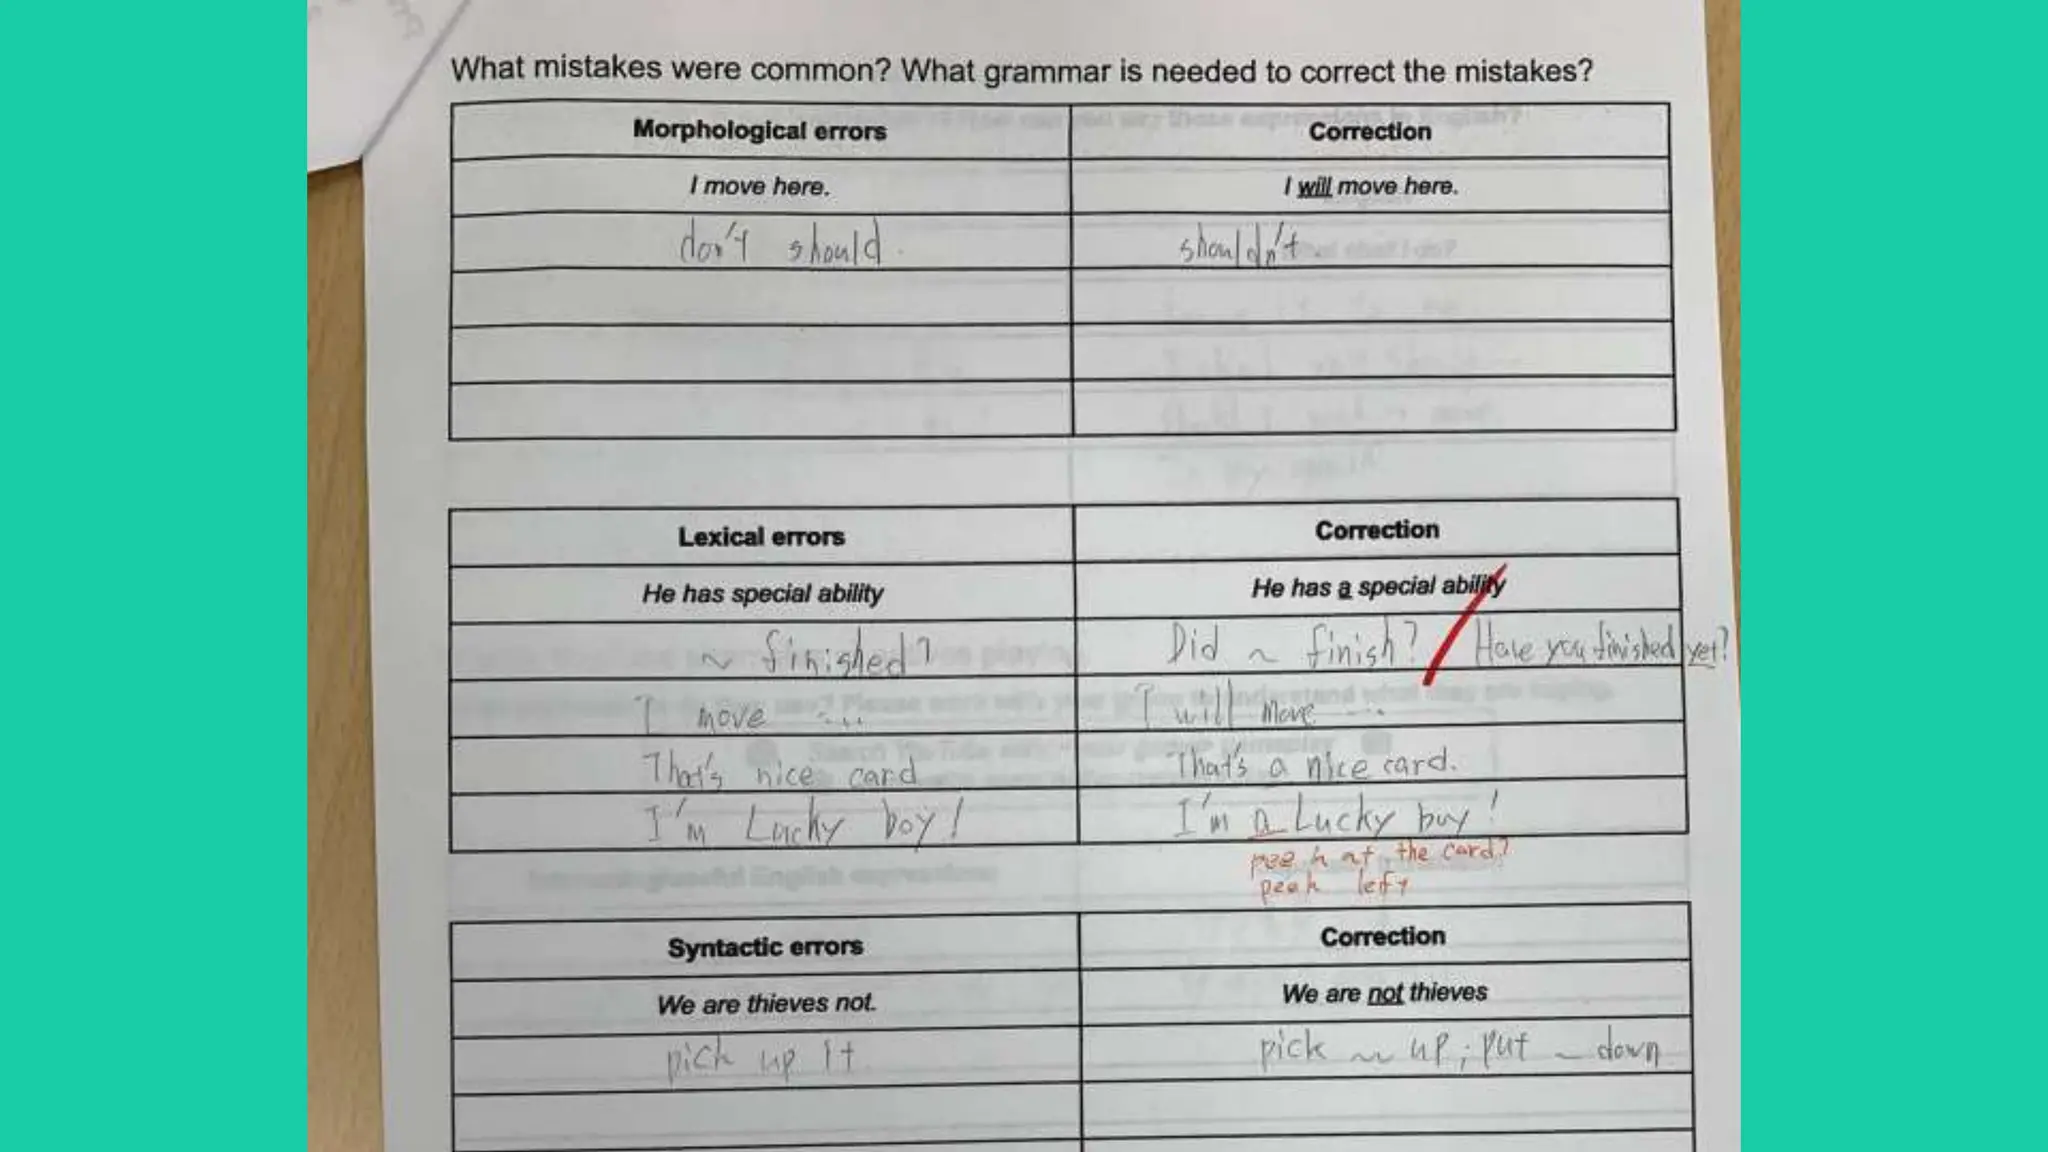 What mistakes were common? What grammar is needed to correct the mistakes?
Morphological errors Correction
I move here. I will move here.
don't should. shouldn't
Lexical errors Correction
He has special ability He has a special ability
~ finished? Did ~ finish? / Have you finished yet?
I move .... I will move ...
That's nice card That's a nice card.
I'm Lucky boy! I'm a Lucky boy!
peek at the card?
peak left
Syntactic errors Correction
We are thieves not. We are not thieves
pick up it pick ~ up; put ~ down